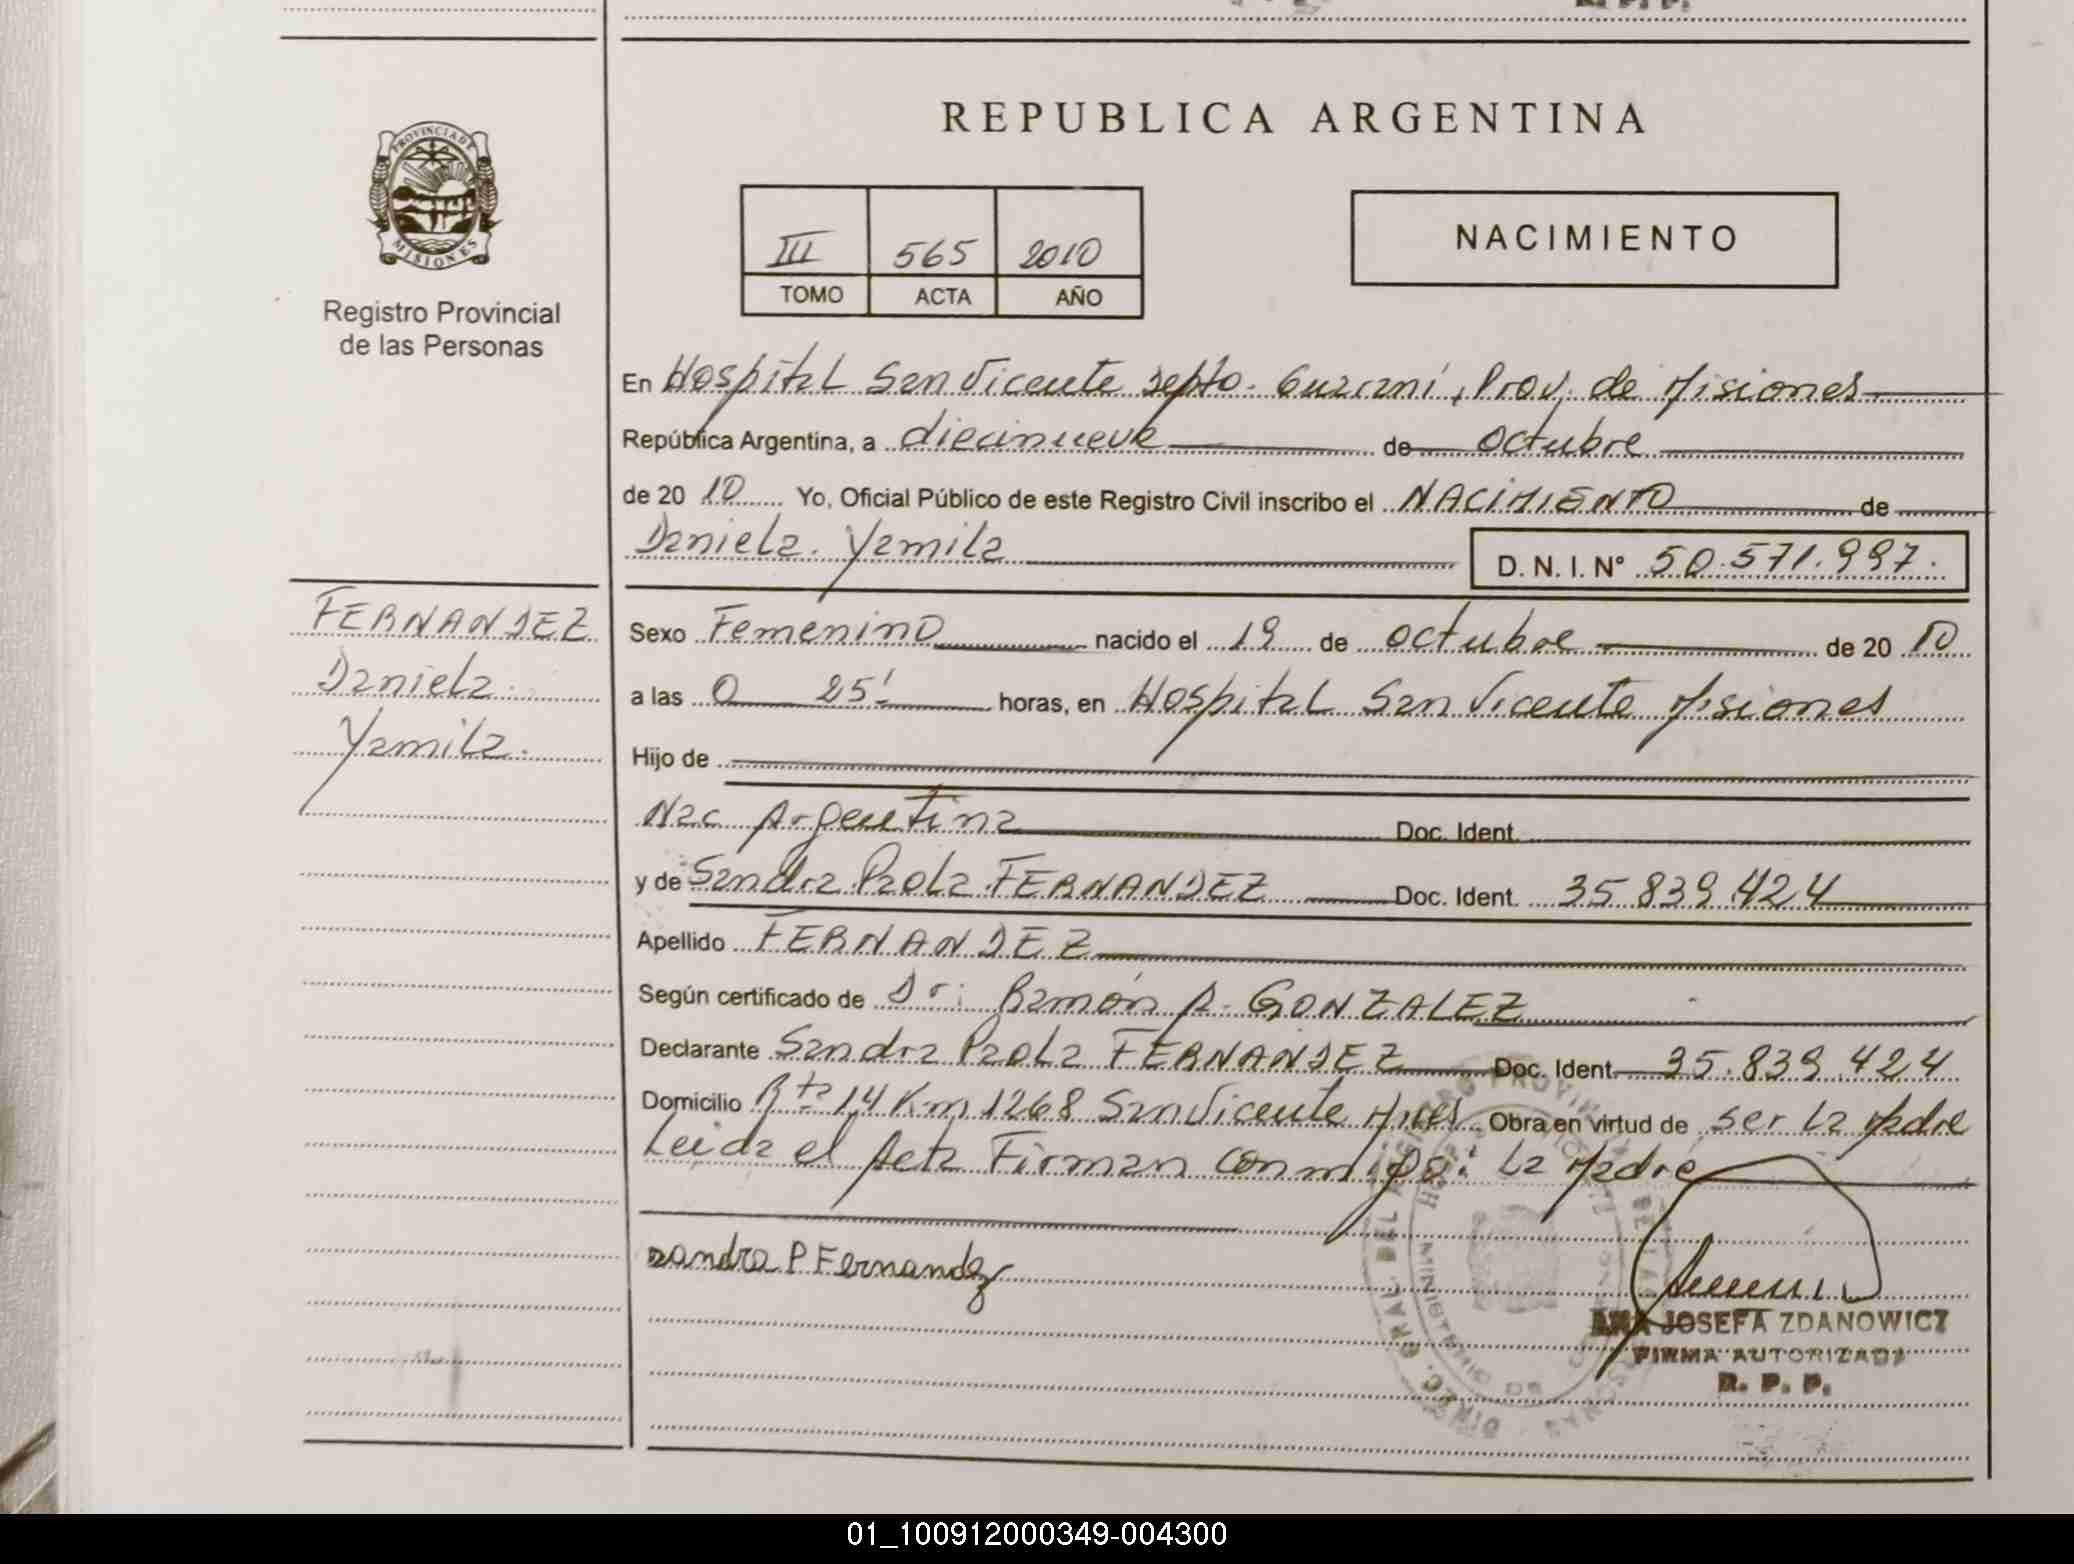 REPUBLICA ARGENTINA
PROVINCIA DE
MISIONES
Registro Provincial
de las Personas
III 565 2010
TOMO ACTA AÑO
NACIMIENTO
En Hospital San Vicente Depto. Guaraní, Prov. de Misiones
República Argentina, a diecinueve de octubre
de 20 10 Yo, Oficial Público de este Registro Civil inscribo el NACIMIENTO de
Daniela Yamila
D. N. I. N° 50.571.997.
FERNANDEZ
Daniela
Yamila.
Sexo Femenino nacido el 19 de octubre de 20 10
a las 0 25' horas, en Hospital San Vicente Misiones
Hijo de
Nac Argentina Doc. Ident.
y de Sandra Paola FERNANDEZ Doc. Ident. 35 839 424
Apellido FERNANDEZ
Según certificado de Dr: Ramón A. GONZALEZ
Declarante Sandra Paola FERNANDEZ Doc. Ident. 35.839.424
Domicilio Rta 14 Km 1268 San Vicente Mnes Obra en virtud de ser la Madre
Leida el Acta Firman conmigo: la Madre
Sandra P Fernandez
ANA JOSEFA ZDANOWICZ
FIRMA AUTORIZADA
R. P. P.
01_100912000349-004300